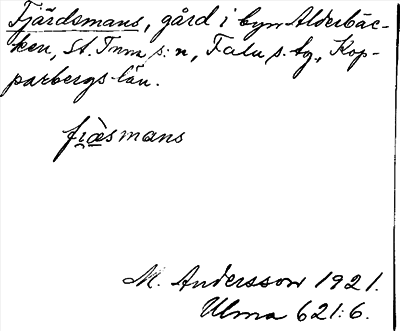 Fjärdsmans, gård i byn Alderbäc-
ken, St. Tuna s:n, Falu s. tg, Kop-
parbergs län.
fjæ̀smans
M. Andersson 1921.
Ulma 621:6.